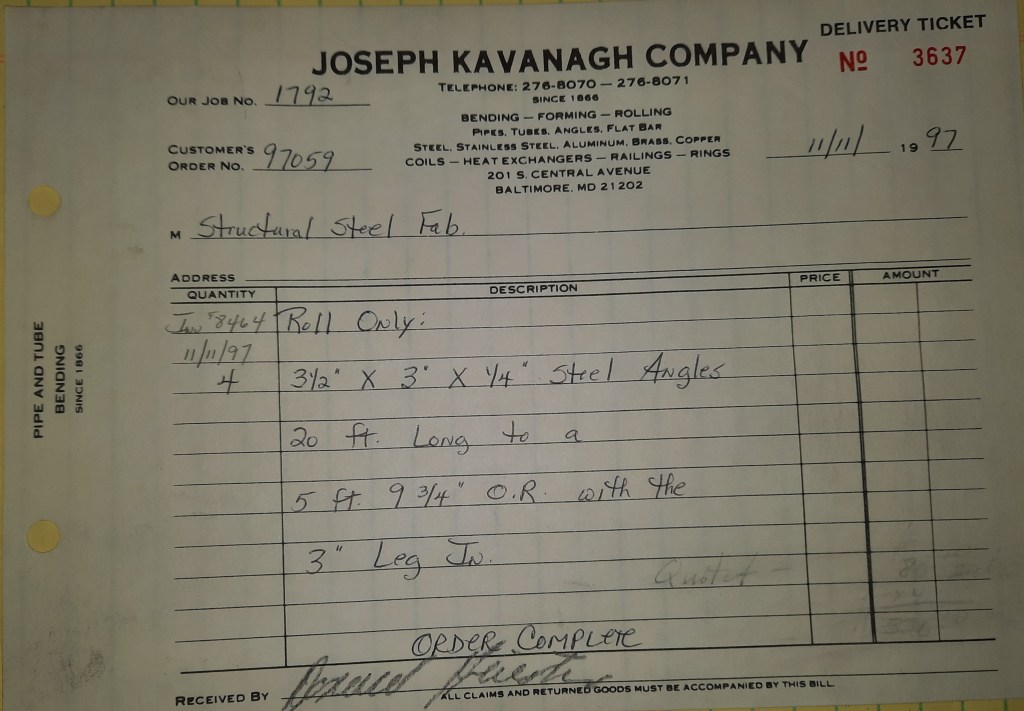 DELIVERY TICKET
JOSEPH KAVANAGH COMPANY
Nº 3637
TELEPHONE: 276-8070 — 276-8071
SINCE 1866
OUR JOB NO. 1792
BENDING — FORMING — ROLLING
PIPES, TUBES, ANGLES, FLAT BAR
STEEL, STAINLESS STEEL, ALUMINUM, BRASS, COPPER
COILS — HEAT EXCHANGERS — RAILINGS — RINGS
201 S. CENTRAL AVENUE
BALTIMORE, MD 21202
CUSTOMER'S
ORDER NO. 97059
11/11/ 1997
M Structural Steel Fab.
ADDRESS
QUANTITY DESCRIPTION PRICE AMOUNT
Inv #8464 Roll Only:
11/11/97
4 3½" X 3" X ¼" Steel Angles
20 ft. Long to a
5 ft. 9 3/4" O.R. with the
3" Leg In.
Quoted —
ORDER COMPLETE
RECEIVED BY
ALL CLAIMS AND RETURNED GOODS MUST BE ACCOMPANIED BY THIS BILL
PIPE AND TUBE
BENDING
SINCE 1866